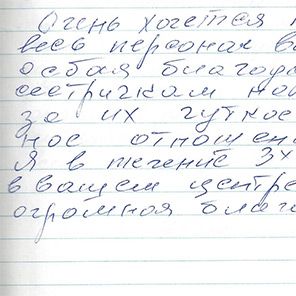 Очень хочется п
весь персонал ва
Особая благода
сестричкам на
за их чуткос
ное отношени
Я в течение 3х
в вашем центре
огромная благо